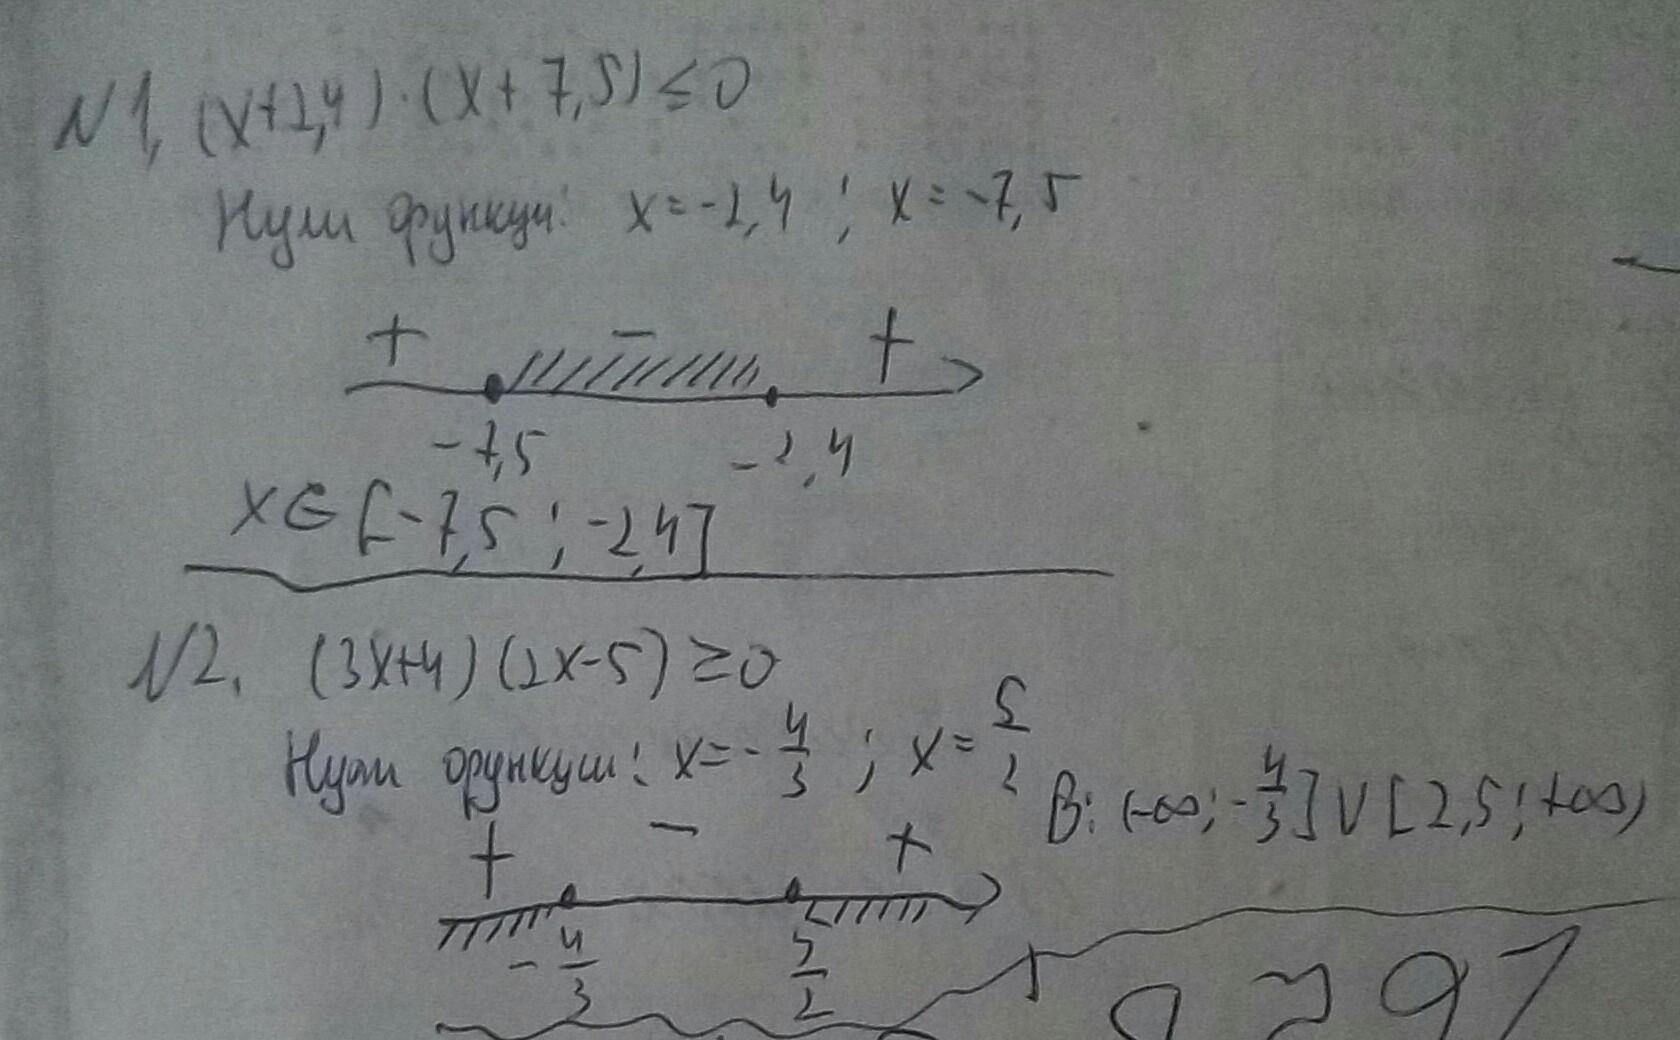 N1, (x+2,4)·(x+7,5)≤0
Нули функци: x=-2,4 ; x=-7,5
+ - +
-7,5 -2,4
x∈[-7,5 ; -2,4]
N2. (3x+4)(2x-5)≥0
Нули функции: x=-4/3 ; x=5/2
B: (-∞; -4/3]∪[2,5; +∞)
+ - +
-4/3 5/2